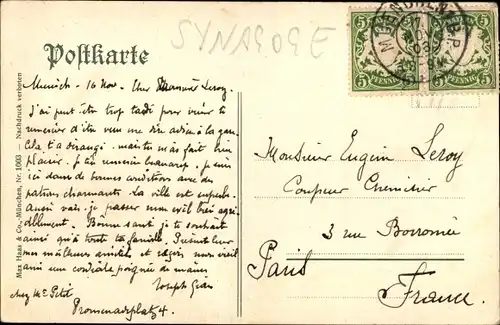 SYNAGOGE
Postkarte
MUENCHEN
5 PFENNIG 5
5 PFENNIG 5
Max Haas & Co., München, Nr. 1003 — Nachdruck verboten
Munich - 16 Nov. Cher Leroy
J'ai peut être trop tardé pour venir te
remercier d'être venu me dire adieu à la gare
Cela t'a dérangé mais tu m'as fait bien
Plaisir. Je t'en remercie beaucoup. Je suis
ici dans de bonnes conditions avec des
patrons charmants. La ville est superbe.
Aussi vais-je passer mon exil très agré-
ablement. Bonne santé je te souhaite
ainsi qu'à toute ta famille.
meilleures amitiés et reçois mon ami
une cordiale poignée de mains
Joseph
chez Mr Petit
Promenadeplatz 4.
Monsieur Eugène Leroy
Coupeur Chemisier
3 rue Borromée
Paris
France